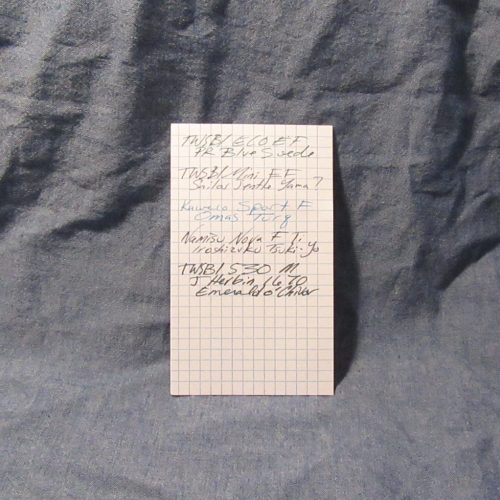 TWSBI ECO EF
PR Blue Suede
TWSBI Mini EF
Sailor Jentle Yama
Kaweco Sport F
Omas Turq
Namisu Nova F T.
Iroshizuku Tsuki-Yo
TWSBI 530 M
J Herbin 1670
Emerald o Chivor